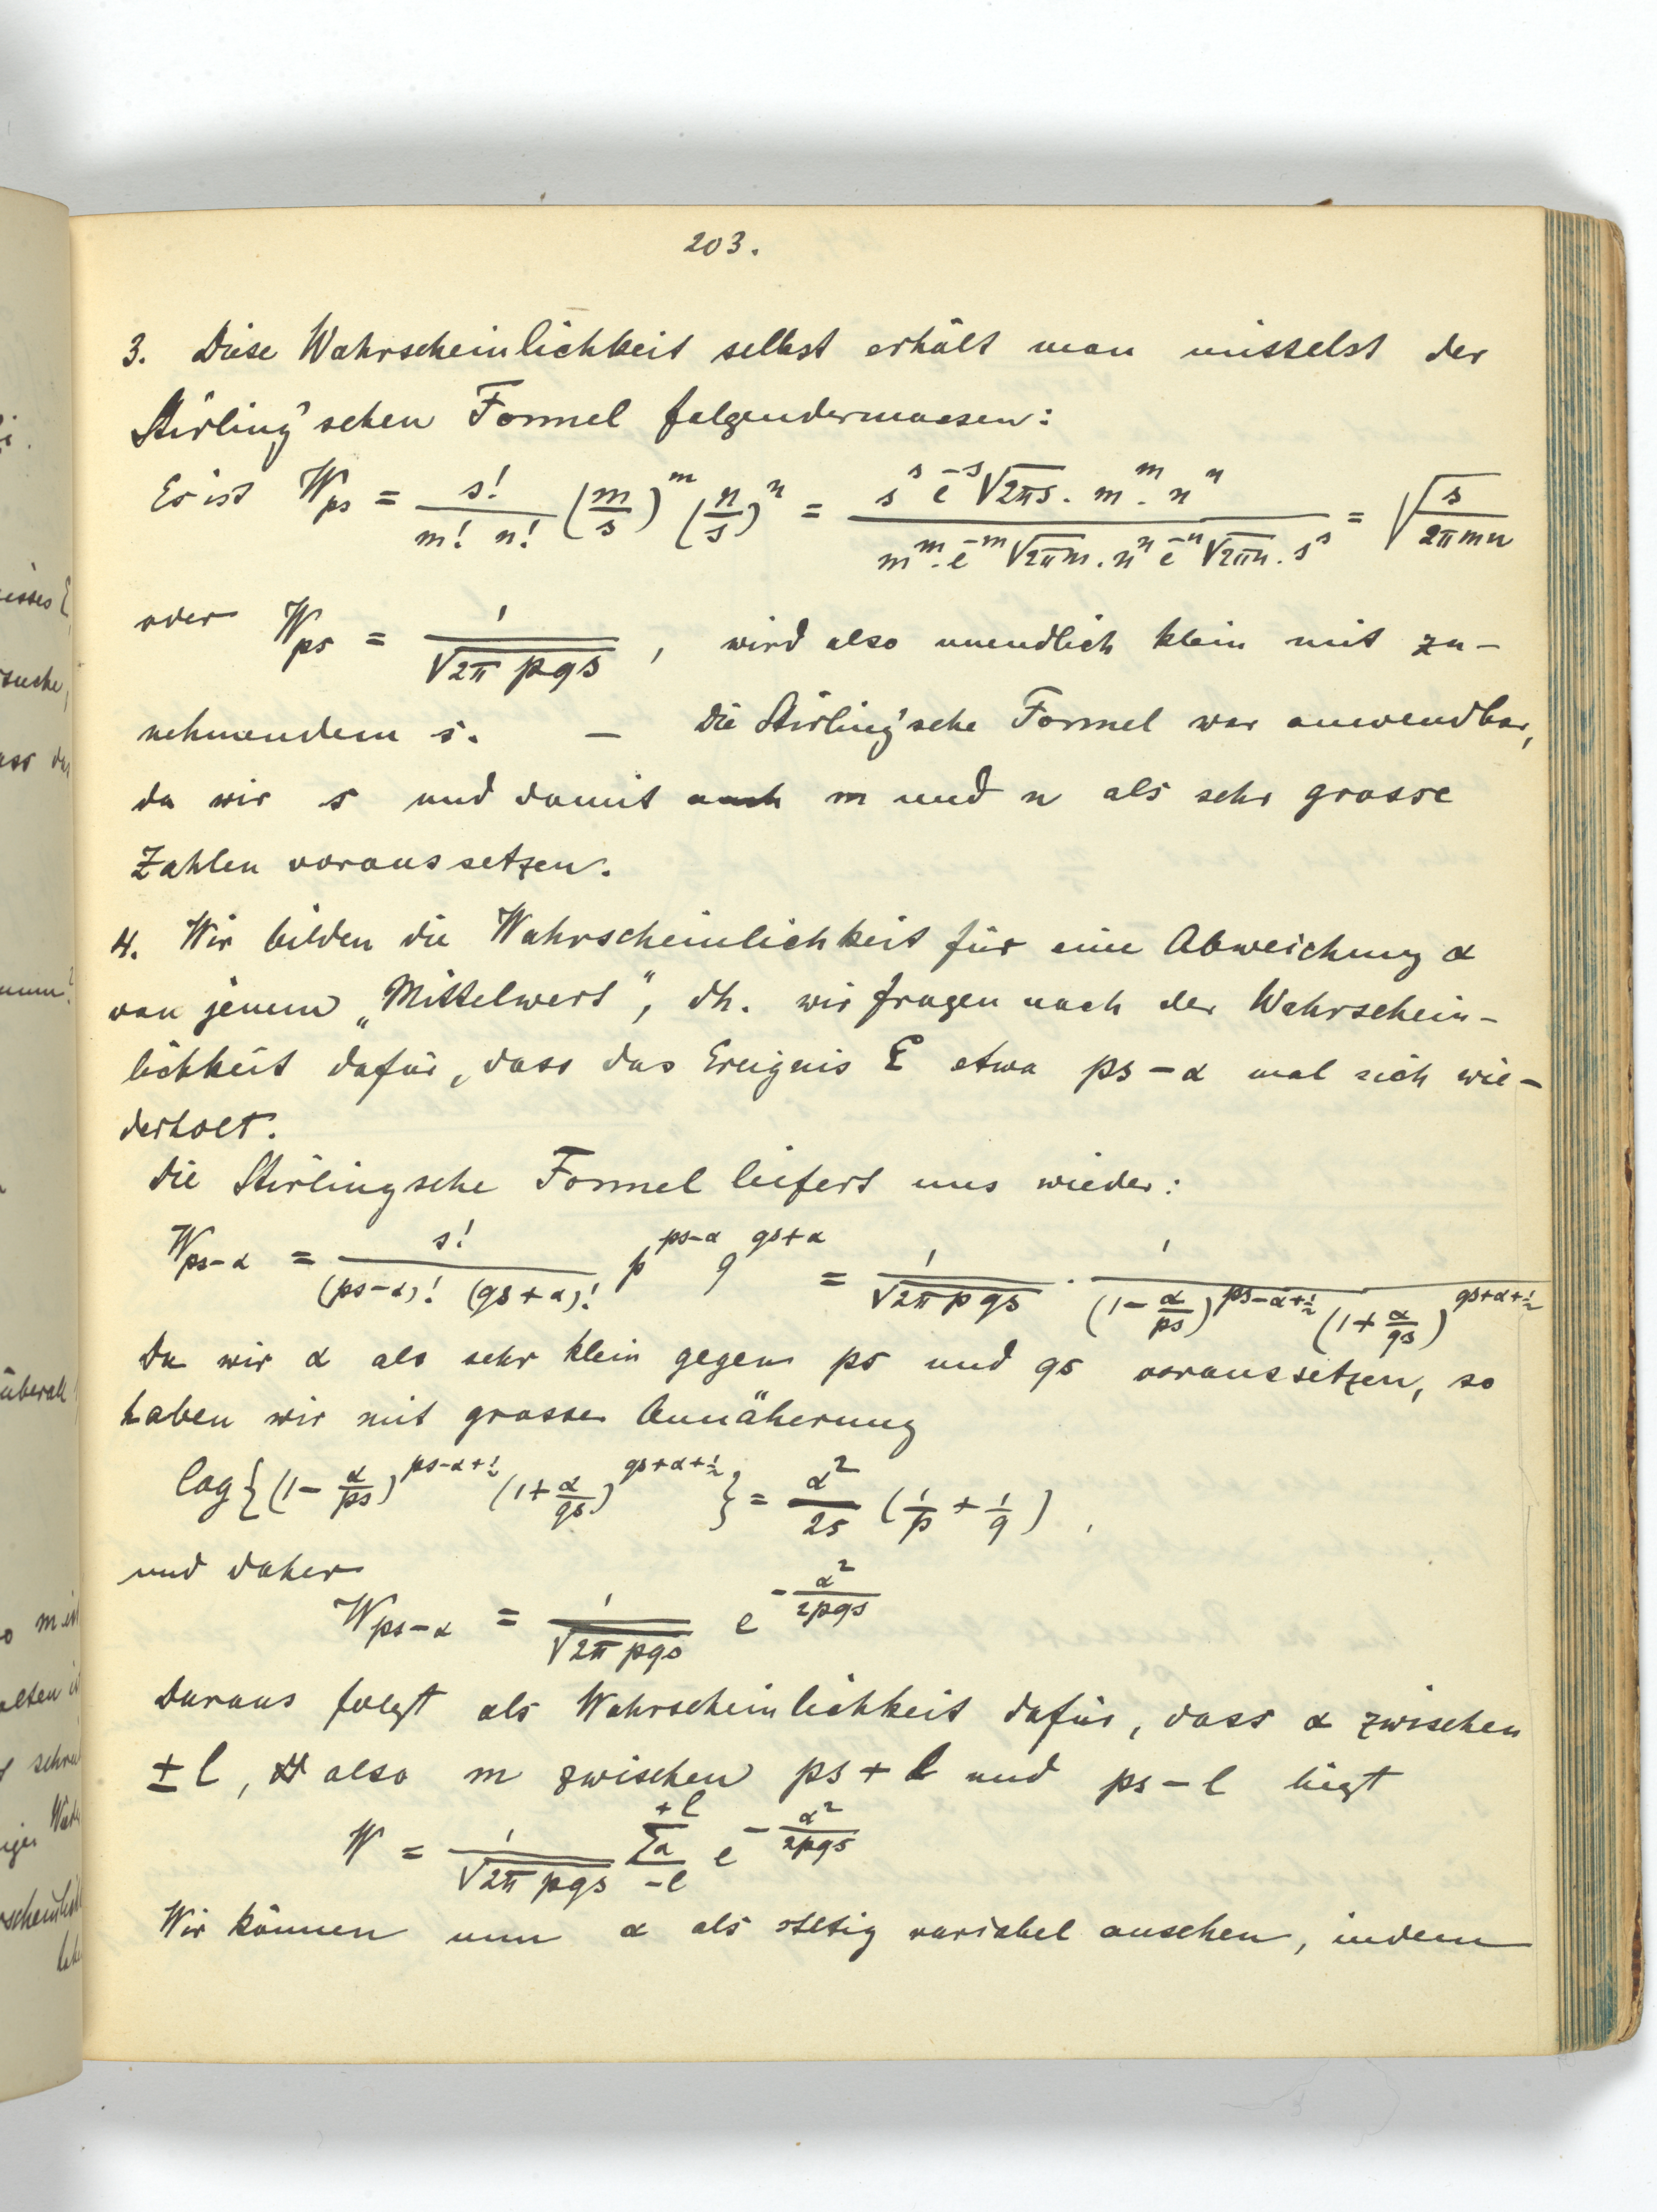 203.
3. Diese Wahrscheinlichkeit selbst erhält man mittelst der
Stirling'schen Formel folgendermassen:
Es ist W_ps = s!/(m! n!) (m/s)^m (n/s)^n = (s^s e^-s √(2πs) . m^m . n^n)/(m^m . e^-m √(2πm) . n^n e^-n √(2πn) . s^s) = √(s/(2πmn))
oder W_ps = 1/√(2π pqs) , wird also unendlich klein mit zu-
nehmendem s. — Die Stirling'sche Formel war anwendbar,
da wir s und damit auch m und n als sehr grosse
Zahlen voraussetzen.
4. Wir bilden die Wahrscheinlichkeit für eine Abweichung α
von jenem „Mittelwert", dh. wir fragen nach der Wahrschein-
lichkeit dafür, dass das Ereignis E etwa ps-α mal sich wie-
derholt.
Die Stirlingsche Formel liefert uns wieder:
W_ps-α = s!/((ps-α)! (qs+α)!) p^(ps-α) q^(qs+α) = 1/√(2π pqs) . 1/((1-α/ps)^(ps-α+½) (1+α/qs)^(qs+α+½))
Da wir α als sehr klein gegen ps und qs voraussetzen, so
haben wir mit grosser Annäherung
log{(1-α/ps)^(ps-α+½) (1+α/qs)^(qs+α+½)} = α²/2s (1/p + 1/q) ,
und daher
W_ps-α = 1/√(2π pqs) e^(-α²/2pqs)
Daraus folgt als Wahrscheinlichkeit dafür, dass α zwischen
± l, also m zwischen ps + l und ps - l liegt
W = 1/√(2π pqs) Σα_(-l)^(+l) e^(-α²/2pqs)
Wir können nun α als stetig variabel ansehen, indem